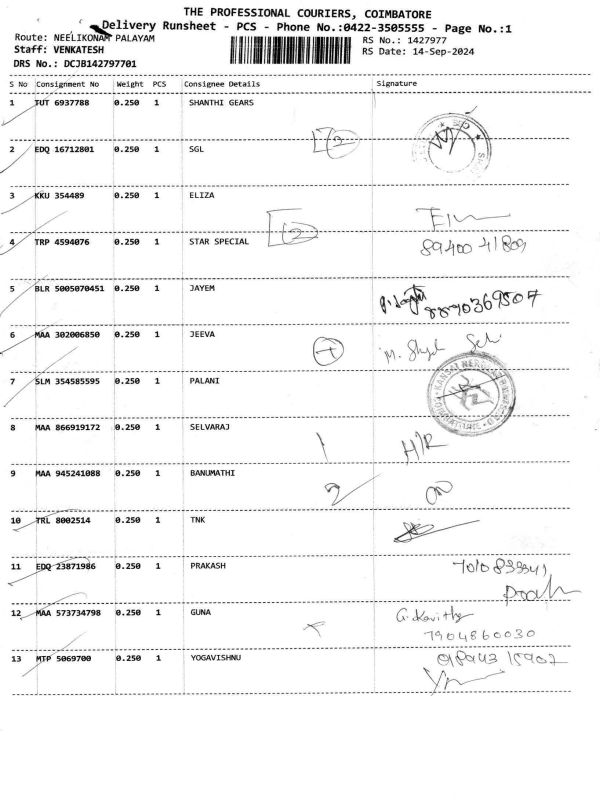 THE PROFESSIONAL COURIERS, COIMBATORE
Delivery Runsheet - PCS - Phone No.:0422-3505555 - Page No.:1
Route: NEELIKONAM PALAYAM
RS No.: 1427977
Staff: VENKATESH
RS Date: 14-Sep-2024
DRS No.: DCJB142797701
S No Consignment No Weight PCS Consignee Details Signature
1 TUT 6937788 0.250 1 SHANTHI GEARS
2 EDQ 16712801 0.250 1 SGL 2
3 KKU 354489 0.250 1 ELIZA
4 TRP 4594076 0.250 1 STAR SPECIAL 2
5 BLR 5005070451 0.250 1 JAYEM
8870369507
6 MAA 302006850 0.250 1 JEEVA
7 SLM 354585595 0.250 1 PALANI
8 MAA 866919172 0.250 1 SELVARAJ 1 H/R
9 MAA 945241088 0.250 1 BANUMATHI 2
10 TRL 8002514 0.250 1 TNK
11 EDQ 23871986 0.250 1 PRAKASH
12 MAA 573734798 0.250 1 GUNA G. Kavitha
7904860030
13 MTP 5069700 0.250 1 YOGAVISHNU